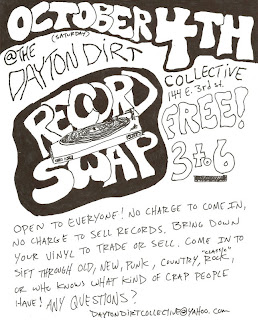 OCTOBER 4TH
(SATURDAY)
@THE
DAYTON DIRT
COLLECTIVE
144 E. 3rd St.
RECORD
SWAP
FREE!
3 to 6
OPEN TO EVERYONE! NO CHARGE TO COME IN,
NO CHARGE TO SELL RECORDS. BRING DOWN
YOUR VINYL TO TRADE OR SELL. COME IN TO
SIFT THROUGH OLD, NEW, PUNK, COUNTRY, "CLASSIC" ROCK,
OR WHO KNOWS WHAT KIND OF CRAP PEOPLE
HAVE! ANY QUESTIONS?
DAYTONDIRTCOLLECTIVE@YAHOO.COM